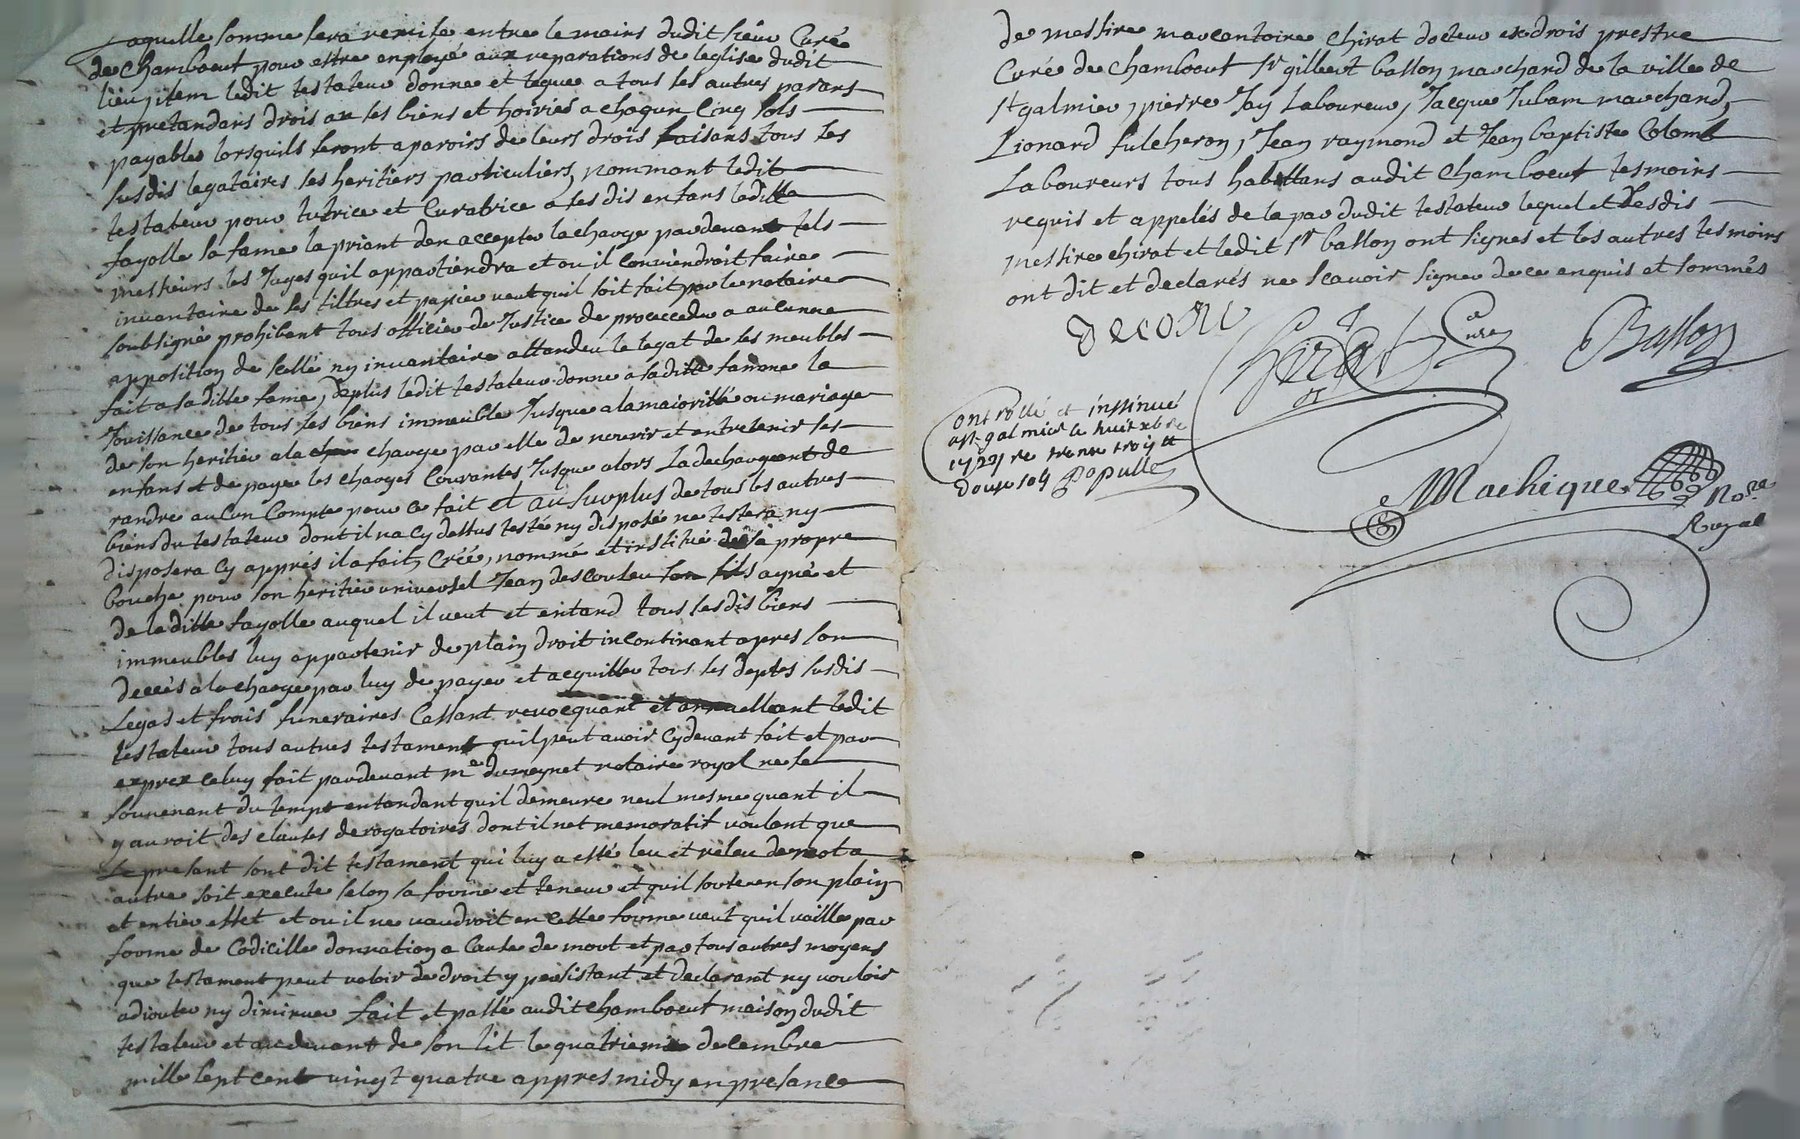 Laquelle somme sera remise entre le mains dudit sieur Curé
de Chambœuf pour estre employé aux reparations de leglise dudit
lieu, item ledit testateur donne et legue a tous ses autres parans
et pretandans drois ax ses biens et hoiries a chaqun Cinq sols
payables lorsquils feront aparoirs de leurs drois faisans tous les
susdis legataires ses heritiers particuliers, nommant ledit
testateur pour tutrice et Curatrice a ses dis enfans laditte
fayolle sa fame la priant den accepter la charge pardevant tels
messieurs les Juges quil appartiendra et ou il Conviendroit faire
inventaire de ses tiltres et papier veut quil soit fait par le notaire
soubsigné prohibant tous officier de Justice de proceder a aucunne
apposition de scellé ny inventaire attandeu le legat de ses meubles
fait a sa ditte fame, deplus ledit testateur donne a saditte famme la
Jouissance de tous ses biens immeuble Jusque a la maiorité ou mariage
de son heritier a la charge par elle de nourir et entretenir ses
enfans et de payer les charges Courantes Jusque alors La dechargeant de
randre aucun Compte pour ce fait et au surplus de tous les autres
biens du testateur dont il na cy dessus testé ny disposé ne testera ny
disposera cy apprés il a fait, Créé, nommé et institué de sa propre
bouche pour son heritier universel Jean descouleu son fils ayné et
de laditte fayolle auquel il veut et entand tous sesdis biens
immeubles luy appartenir de plain droit incontinant apres son
deces a la charge par luy de payer et acquitter tous ses deptes susdis
Legas et frais funeraires Cassant revocquant et annulleant ledit
testateur tous autres testament quil peut avoir Cydevant fait et par
exprex celuy fait pardevant me dumeynet notaire royal ne se
souvenant du temps entandant quil demeure neul mesme quant il
y auroit des clauses derogatoires dont il net memoratif voulant que
Le presant sont dit testament qui luy a esté leu et releu de mot a
autre soit execute selon sa forme et teneur et quil sorte en son plain
et entier effet et ou il ne vaudroit en cette forme veut quil vaille par
forme de Codicille donnation a Cause de mort et par tous autres moyens
que testament peut valoir de droit y persistant et declarant ny vouloir
adiouter ny diminuer fait et passé audit Chambœuf maison dudit
testateur et au devant de son lit le quatrieme decembre
mille sept cent vingt quatre appres midy en presance
de messire marcantoine Chirat docteur es drois prestre
Curé de Chambœuf Sr gilbert basson marchand de la ville de
St galmier, pierre Jay Laboureur, Jacque Jubam marchand,
Lionard fulcheron, Jean raymond et Jean baptiste Colomb
Laboureurs tous habittans audit Chambœuf tesmoins
requis et appelés de la par dudit testateur lequel et Lesdis
messire chirat et ledit Sr basson ont signes et les autres tesmoins
ont dit et declarés ne scavoir signer de ce enquis et sommés
Chirat Curé
Basson
Controllé et inssinué
a St galmier le huit xbre
1724 re trente trois tt
douze sols Populle
Machique Nore
Royal